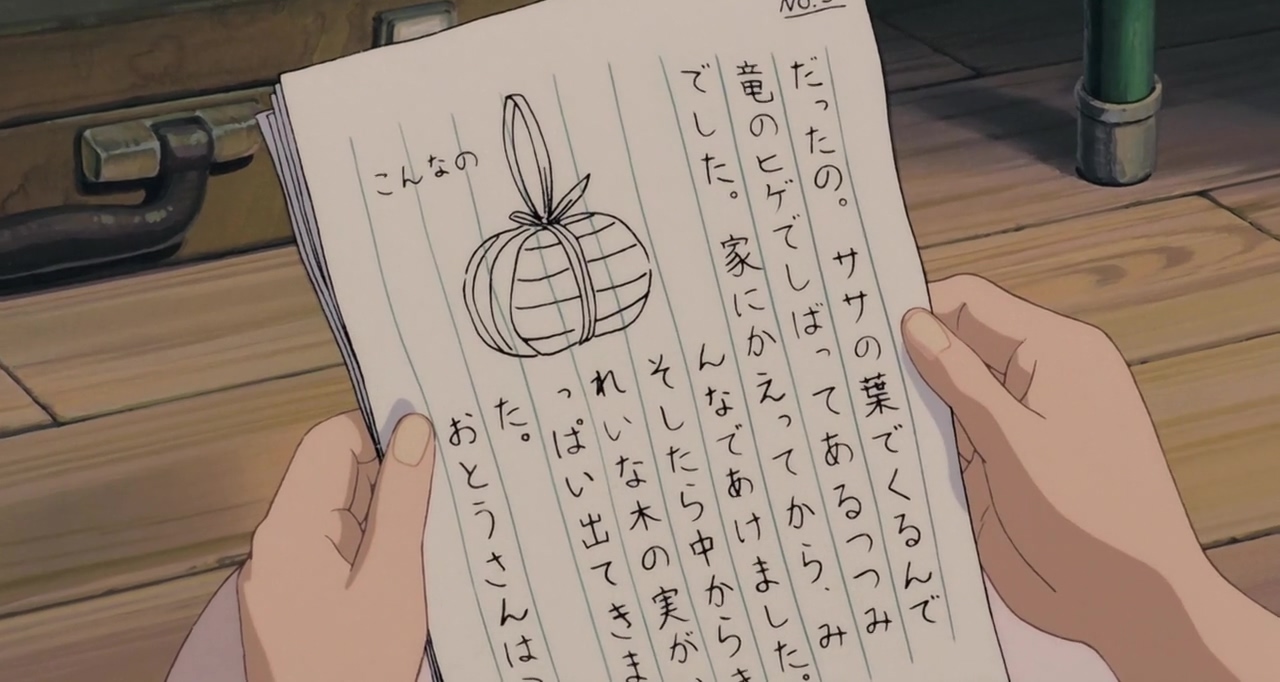 No.3
だったの。ササの葉でくるんで
竜のヒゲでしばってあるつつみ
でした。家にかえってから、み
んなであけました。
そしたら中からき
れいな木の実が、
っぱい出てきま
た。
おとうさんは
こんなの